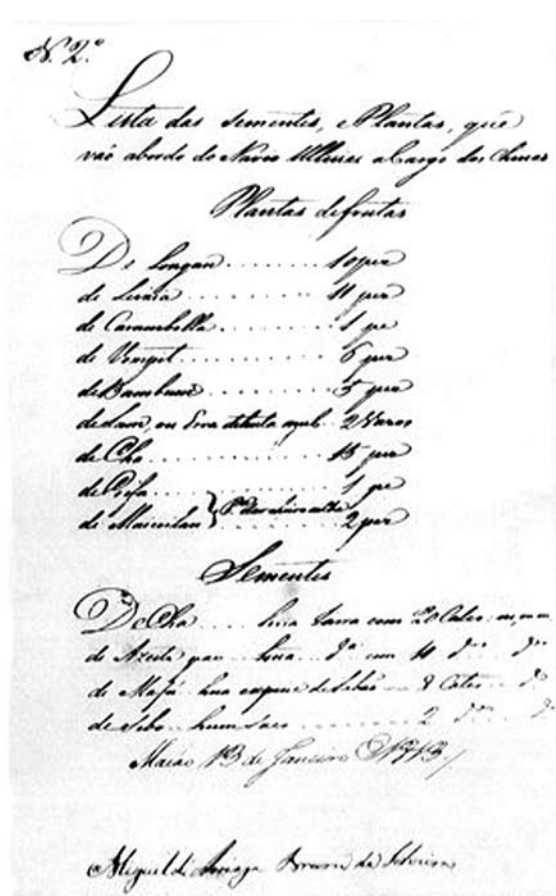 N. 2.º
Lista das Sementes, e Plantas, que
vaõ abordo do Navio Ulisses a Cargo dos Chinas
Plantas de frutas
De Longan ........ 10 pes
de Leixia ........ 11 pes
de Carambolla ........ 1 pe
de Vompit ........ 6 pes
de Bambum ........ 5 pes
de Lam, ou Erva de tinta azul .. 2 Vazos
de Cha ........ 15 pes
de ........ 1 pe
de ........ 2 pes
Sementes
De Cha .... huã Jarra com 20 Cates
de Azeite pao .... huã .. dª com 11 dºs
de Mafú huã especie de Sebo ... 8 Cates .. dº
de Sebo .. hum Saco ........ 2 dºs
Macao 13 de Janeiro
Miguel de Arriaga Brum da Silveira